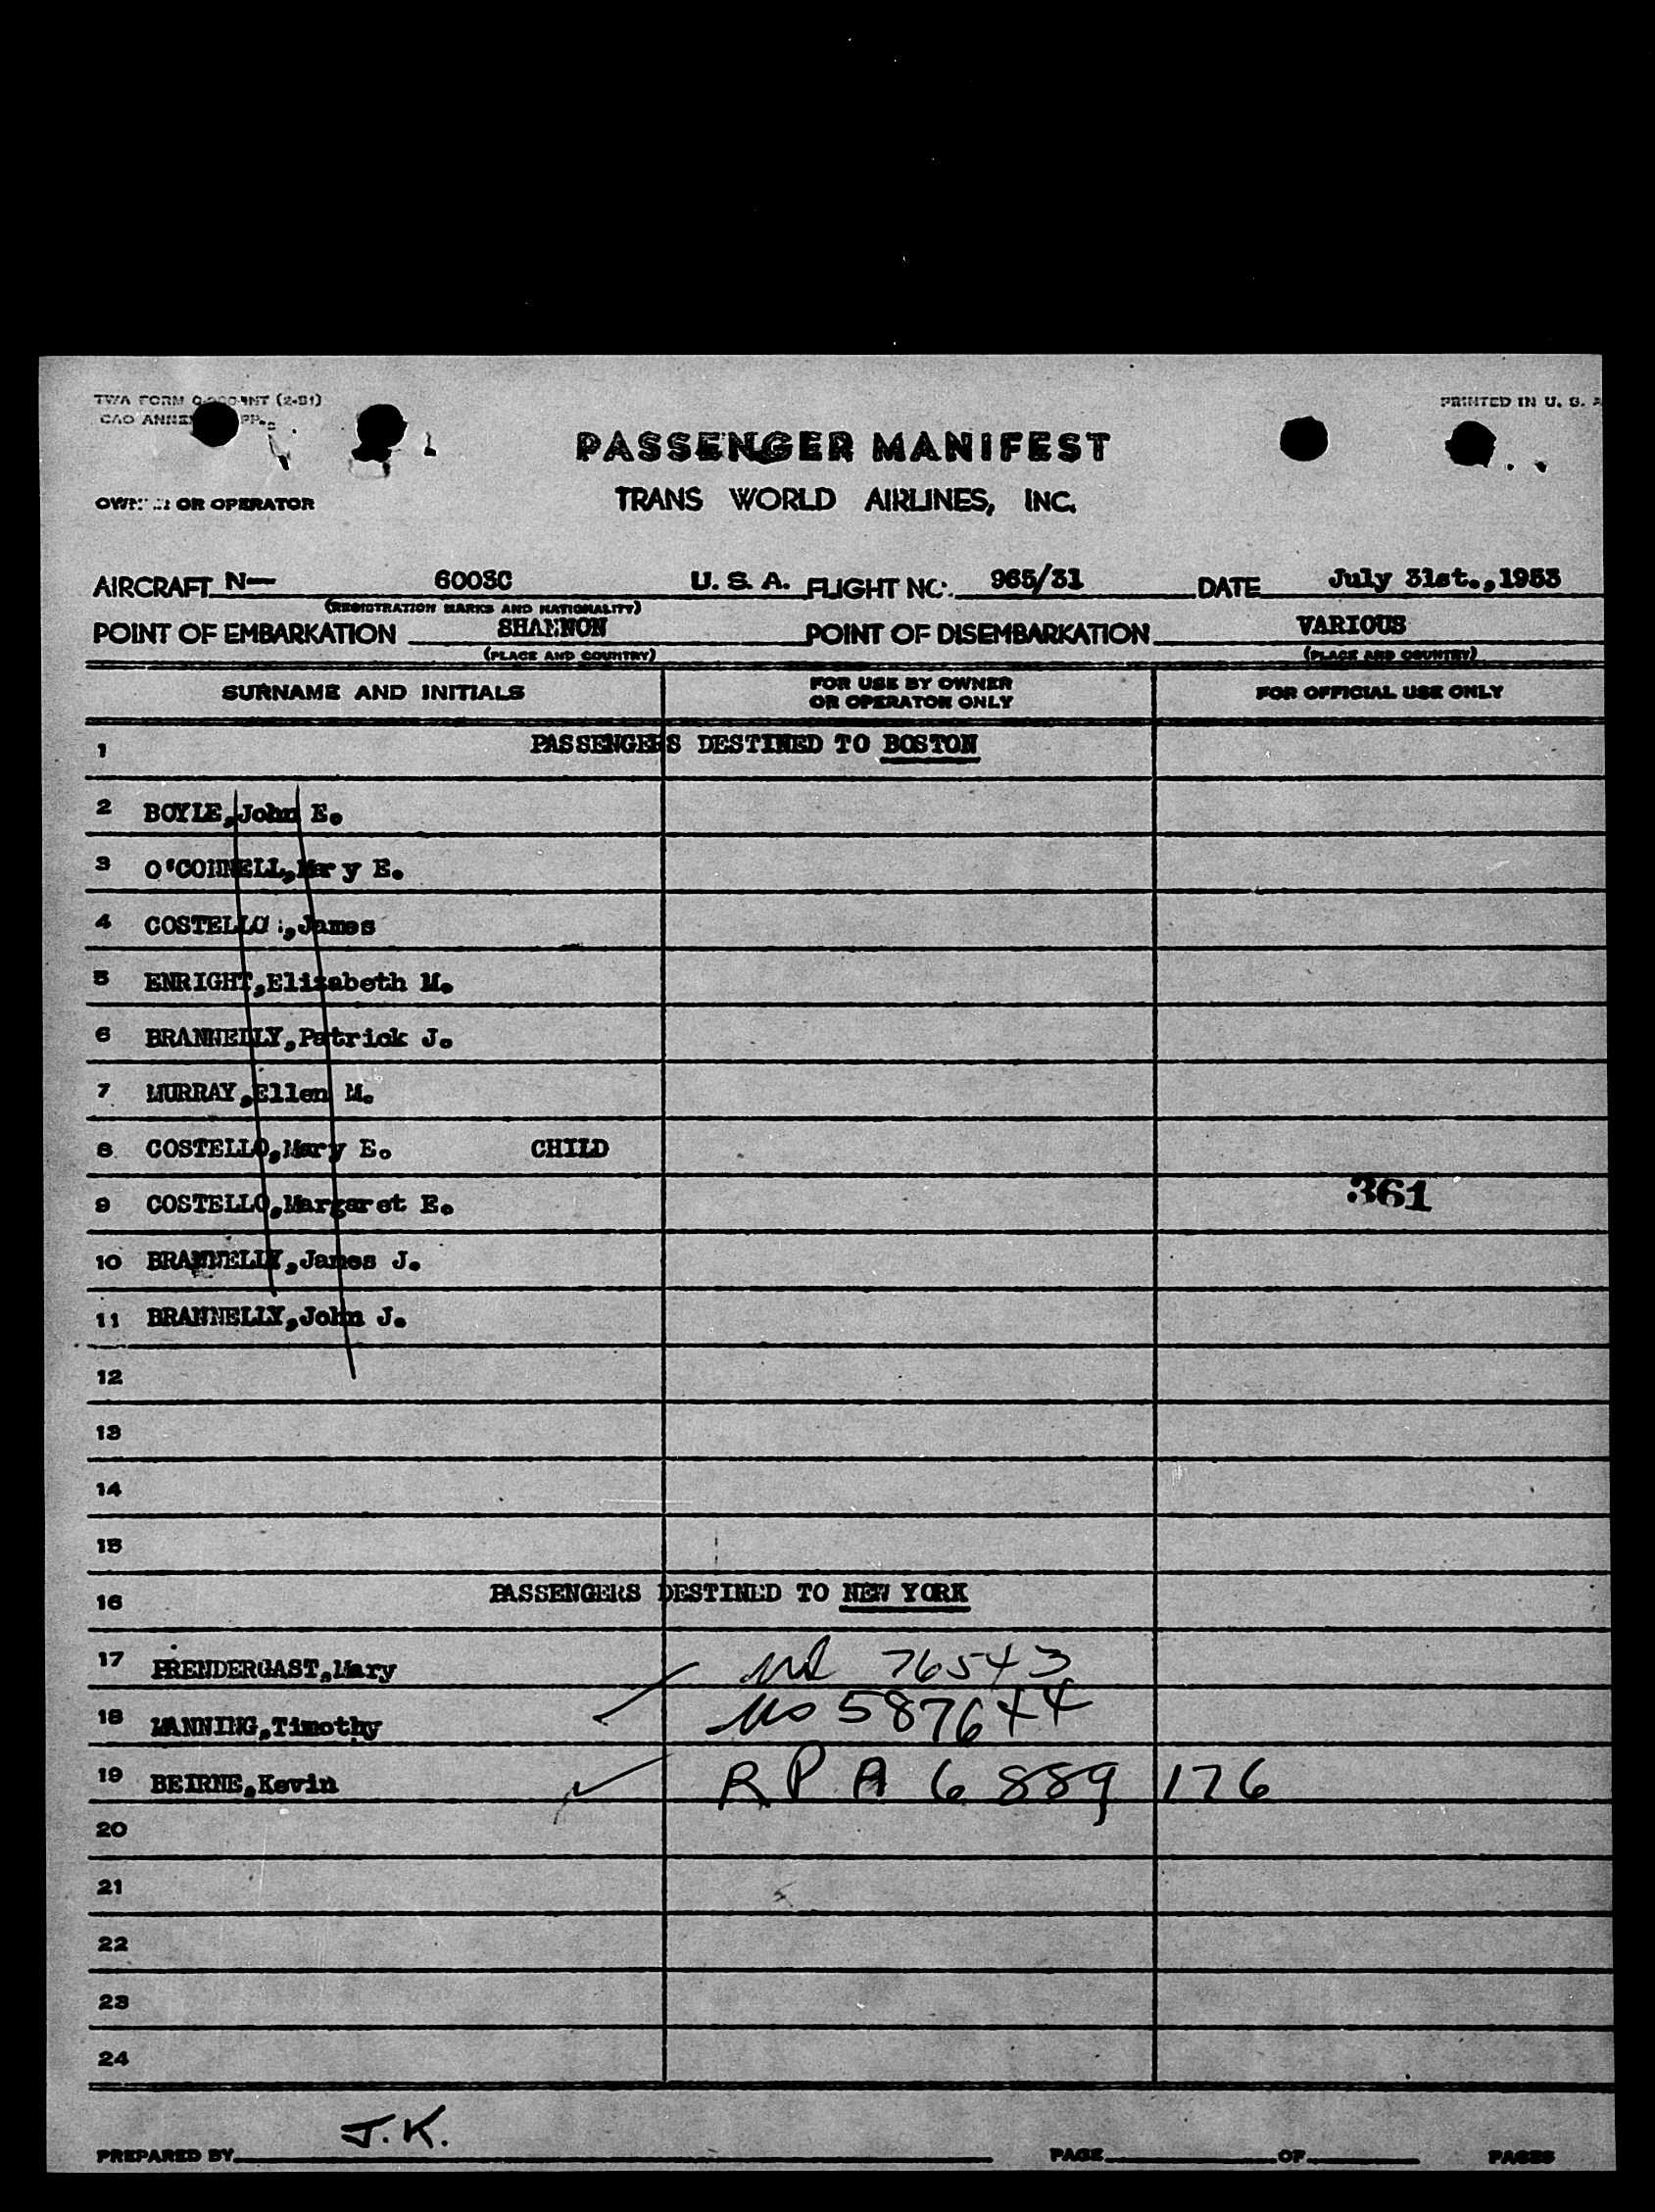 TWA FORM (2-51)
PRINTED IN U. S. A
CAO ANNEX
PASSENGER MANIFEST
OWNER OR OPERATOR
TRANS WORLD AIRLINES, INC.
AIRCRAFT N— 6003C U. S. A. FLIGHT NO. 965/31 DATE July 31st.,1953
(REGISTRATION MARKS AND NATIONALITY)
POINT OF EMBARKATION SHANNON POINT OF DISEMBARKATION VARIOUS
(PLACE AND COUNTRY) (PLACE AND COUNTRY)
SURNAME AND INITIALS FOR USE BY OWNER OR OPERATOR ONLY FOR OFFICIAL USE ONLY
1 PASSENGERS DESTINED TO BOSTON
2 BOYLE,John E.
3 O'CONNELL,Mary E.
4 COSTELLO :,James
5 ENRIGHT,Elizabeth M.
6 BRANNELLY,Patrick J.
7 MURRAY,Ellen M.
8 COSTELLO,Mary E. CHILD
9 COSTELLO,Margaret E. 361
10 BRANNELLY,James J.
11 BRANNELLY,John J.
12
13
14
15
16 PASSENGERS DESTINED TO NEW YORK
17 PRENDERGAST,Mary 76543
18 MANNING,Timothy 587644
19 BEIRNE,Kevin R P A 6 889 176
20
21
22
23
24
J.K.
PREPARED BY PAGE OF PAGES